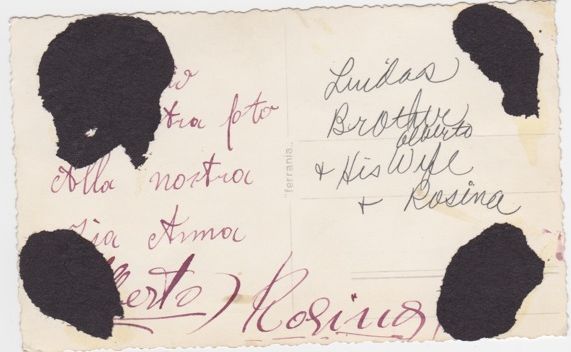 tra foto
Alla nostra
Zia Anna
lberto) Rosina
ferrania
Luidas
Brother
Alberto
+ His Wife
+ Rosina